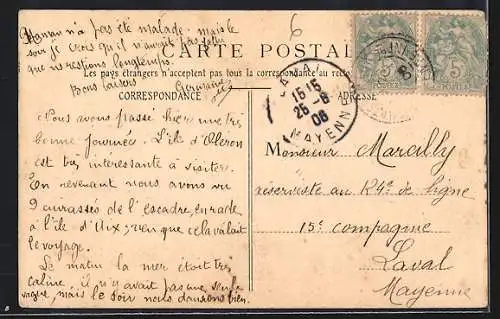 Maman n'a pas été malade. mais le
soir je crois qu'il n'aurait pas fallu
que nous restions longtemps.
Bons baisers Germaine
6
CARTE POSTALE
Les pays étrangers n'acceptent pas tous la correspondance au recto
CORRESPONDANCE
ADRESSE
LAVAL
15 15
25-8
06
MAYENNE
5
5
Nous avons passé hier une très
bonne journée. L'île d'Oleron
est très intéressante à visiter.
En revenant nous avons vu
9 cuirassés de l'escadre, en rade
à l'île d'Aix; rien que cela valait
le voyage.
Le matin la mer était très
calme, il n'y avait pas une seule
vague, mais le soir nous dansions bien.
Monsieur Marcilly
réserviste au de ligne
15e compagnie
Laval
Mayenne